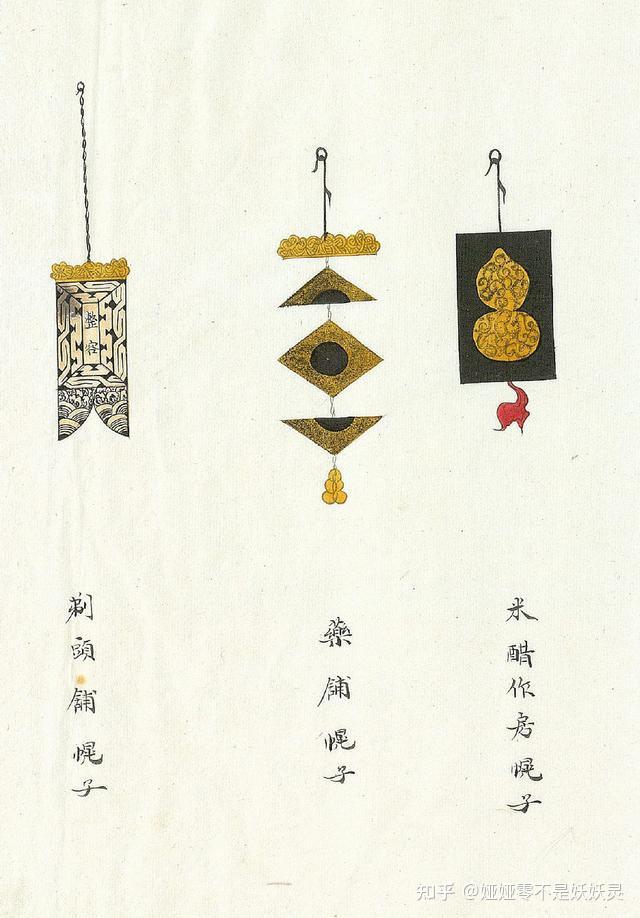 米醋作房幌子
藥舖幌子
剃頭舖幌子
整容
知乎 @娅娅零不是妖妖灵